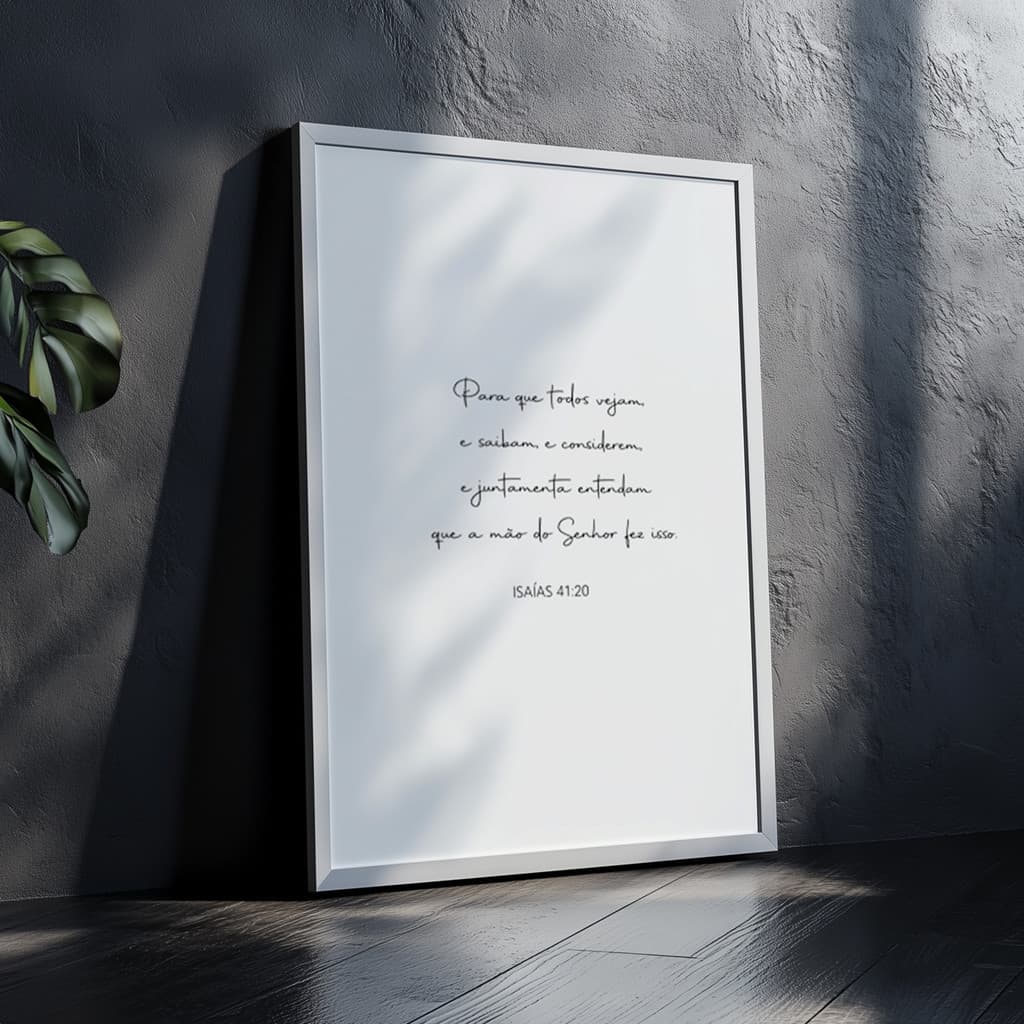 Para que todos vejam,
e saibam, e considerem,
e juntamenta entendam
que a mão do Senhor fez isso.
ISAÍAS 41:20